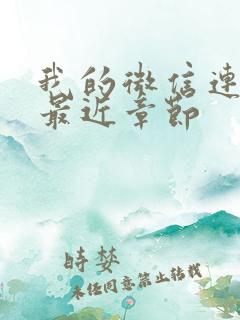 我的微信連
最近章節
時婪
未任同意禁止转载